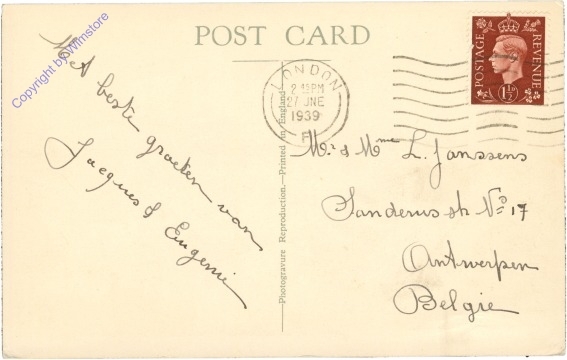 POST CARD
Copyright by Wimstore
Met beste groeten van
Jacques & Eugenie
LONDON
2 45PM
27 JNE
1939
F
POSTAGE
REVENUE
1½
D
Photogravure Reproduction.—Printed in England
Mr. & Mme L. Janssens
Sanderus str No 17
Antwerpen
Belgie